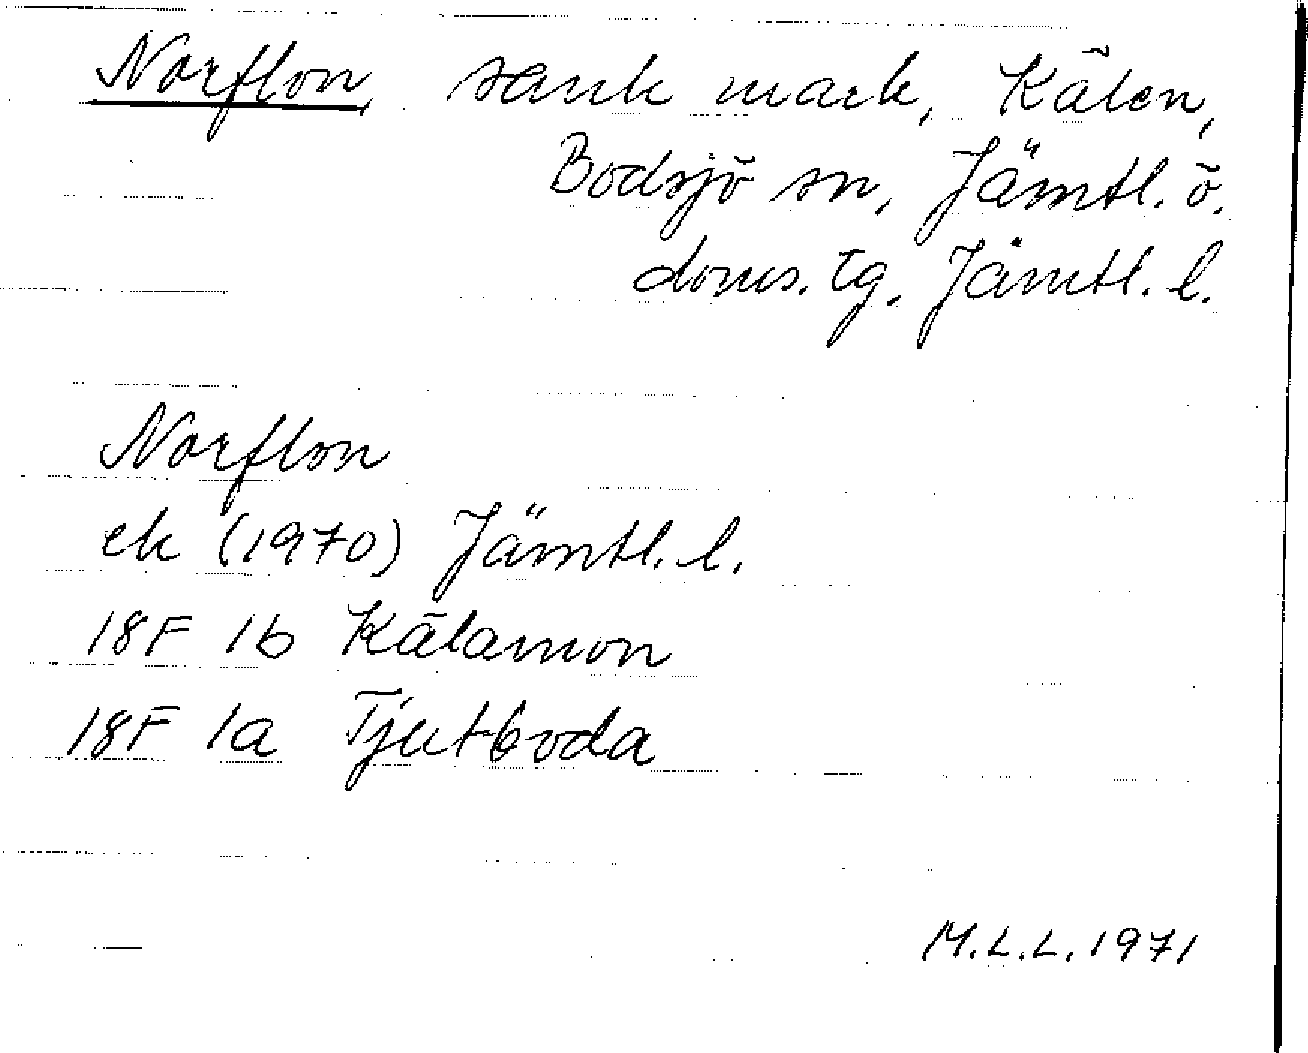 Norflon, sank mark, Kälen,
Bodsjö sn, Jämtl. ö.
doms. tg. Jämtl. l.
Norflon
ek (1970) Jämtl. l.
18F 1b Kälamon
18F 1a Tjutboda
M.L.L. 1971